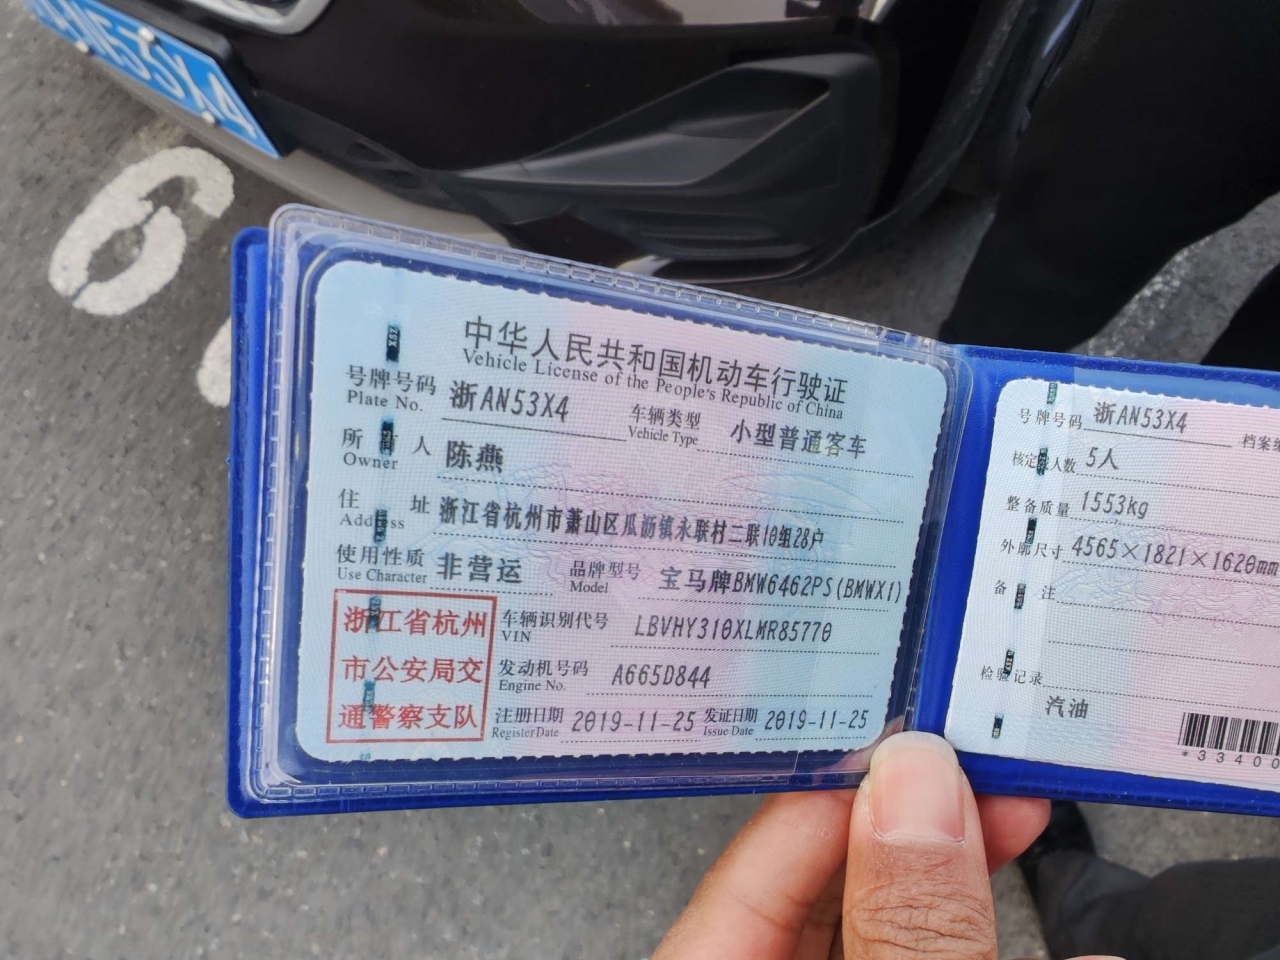 中华人民共和国机动车行驶证
Vehicle License of the People's Republic of China
号牌号码 浙AN53X4 车辆类型 小型普通客车
Plate No. Vehicle Type
所有人 陈燕
Owner
住址 浙江省杭州市萧山区瓜沥镇永联村二联10组28户
Address
使用性质 非营运 品牌型号 宝马牌BMW6462PS(BMWX1)
Use Character Model
浙江省杭州
市公安局交
通警察支队
车辆识别代号 LBVHY310XLMR85770
VIN
发动机号码 A665D844
Engine No.
注册日期 2019-11-25 发证日期 2019-11-25
Register Date Issue Date
号牌号码 浙AN53X4 档案编
核定载人数 5人
整备质量 1553kg
外廓尺寸 4565×1821×1620mm
备注
检验记录
汽油
*33400
N53X4
6